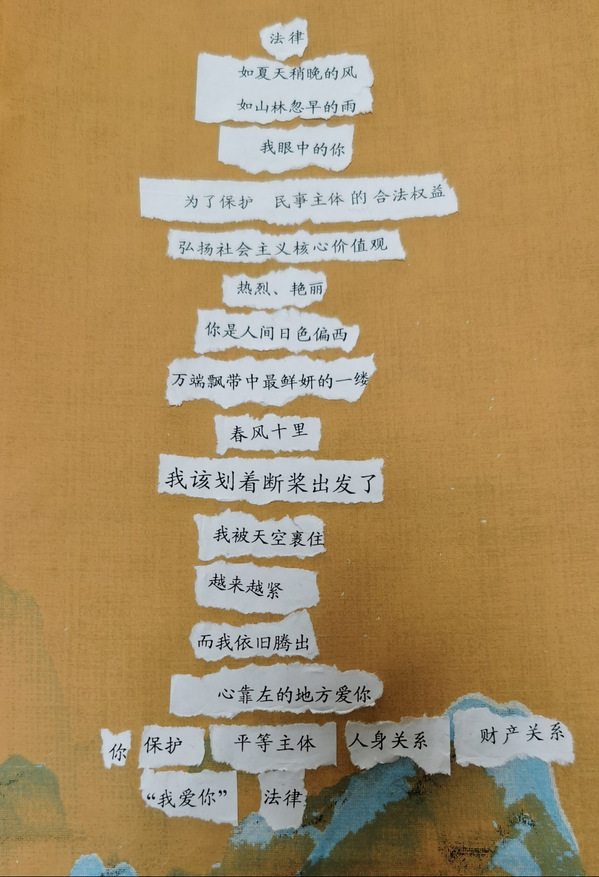 法律
如夏天稍晚的风
如山林忽早的雨
我眼中的你
为了保护 民事主体的合法权益
弘扬社会主义核心价值观
热烈、艳丽
你是人间日色偏西
万端飘带中最鲜妍的一缕
春风十里
我该划着断桨出发了
我被天空裹住
越来越紧
而我依旧腾出
心靠左的地方爱你
你 保护 平等主体 人身关系 财产关系
“我爱你” 法律